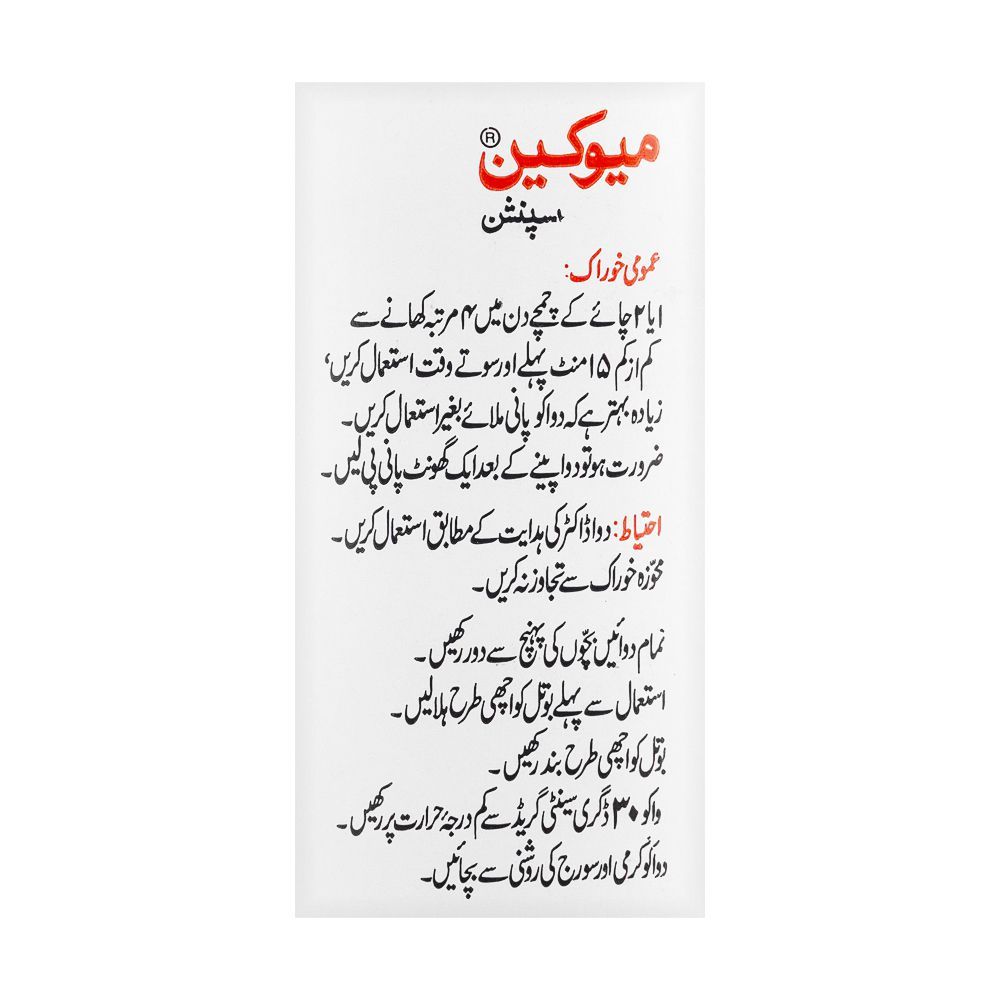 میوکین®
سسپنشن
عمومی خوراک:
۱ یا ۲ چائے کے چمچے دن میں ۴ مرتبہ کھانے سے
کم از کم ۱۵ منٹ پہلے اور سوتے وقت استعمال کریں،
زیادہ بہتر ہے کہ دوا کو پانی ملائے بغیر استعمال کریں۔
ضرورت ہو تو دوا پینے کے بعد ایک گھونٹ پانی پی لیں۔
احتیاط: دوا ڈاکٹر کی ہدایت کے مطابق استعمال کریں۔
مجوّزہ خوراک سے تجاوز نہ کریں۔
تمام دوائیں بچّوں کی پہنچ سے دور رکھیں۔
استعمال سے پہلے بوتل کو اچھی طرح ہلا لیں۔
بوتل کو اچھی طرح بند رکھیں۔
واکو ۳۰ ڈگری سینٹی گریڈ سے کم درجۂ حرارت پر رکھیں۔
دوا کو گرمی اور سورج کی روشنی سے بچائیں۔